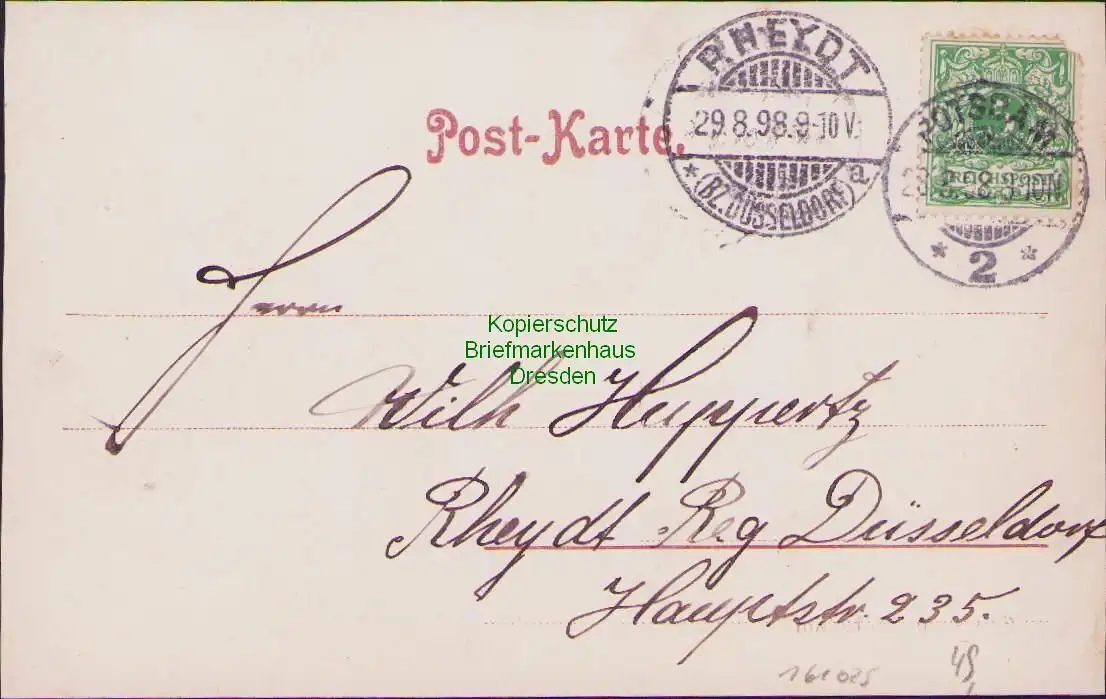 Post-Karte.
RHEYDT
29.8.98.8-10V.
* (BZ. DÜSSELDORF) a
POTSDAM
REICHSPOST
* 2 *
Herrn
Kopierschutz
Briefmarkenhaus
Dresden
Wilh Huppertz
Rheydt Reg Düsseldorf
Hauptstr. 235.
161025